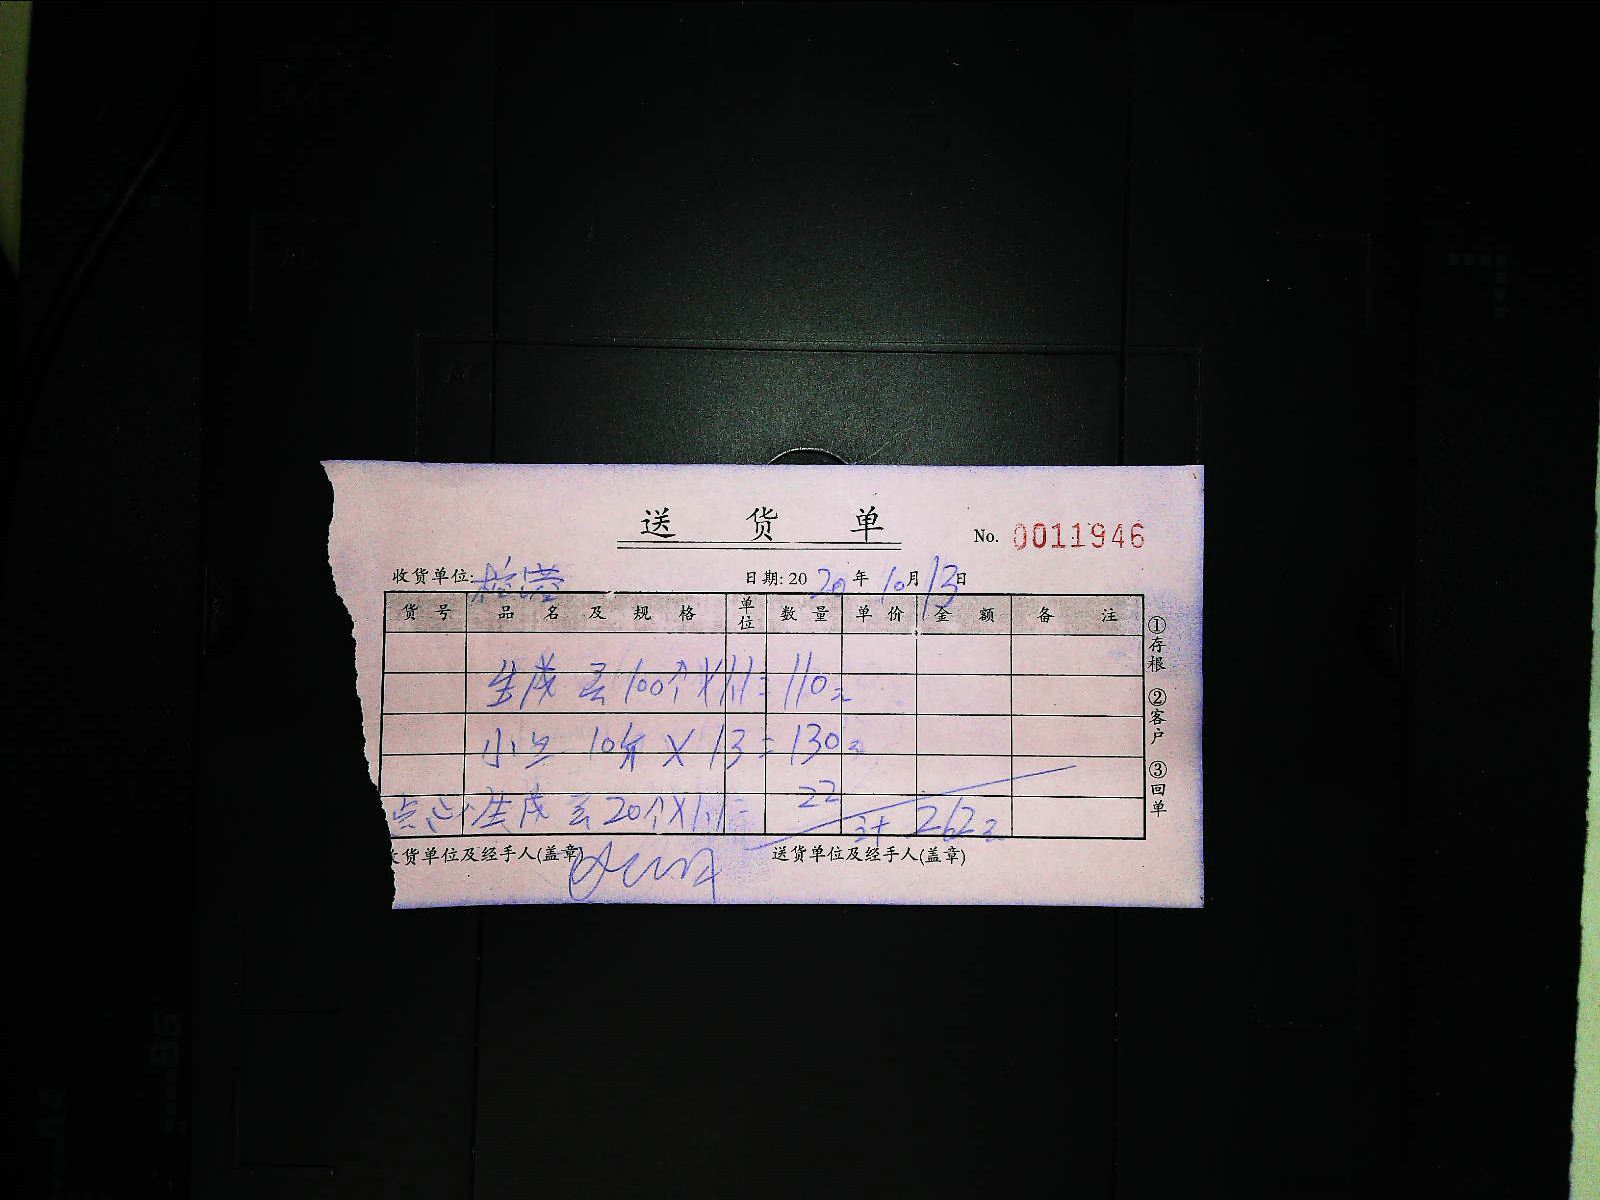 送 货 单
No. 0011946
收货单位: 日期: 2020年10月13日
货号 品名及规格 单位 数量 单价 金额 备注
生 100个×1.1=110元
小 10 × 13 = 130元
点心 生 20个×1.1= 22
计 262元
收货单位及经手人(盖章) 送货单位及经手人(盖章)
①存根 ②客户 ③回单